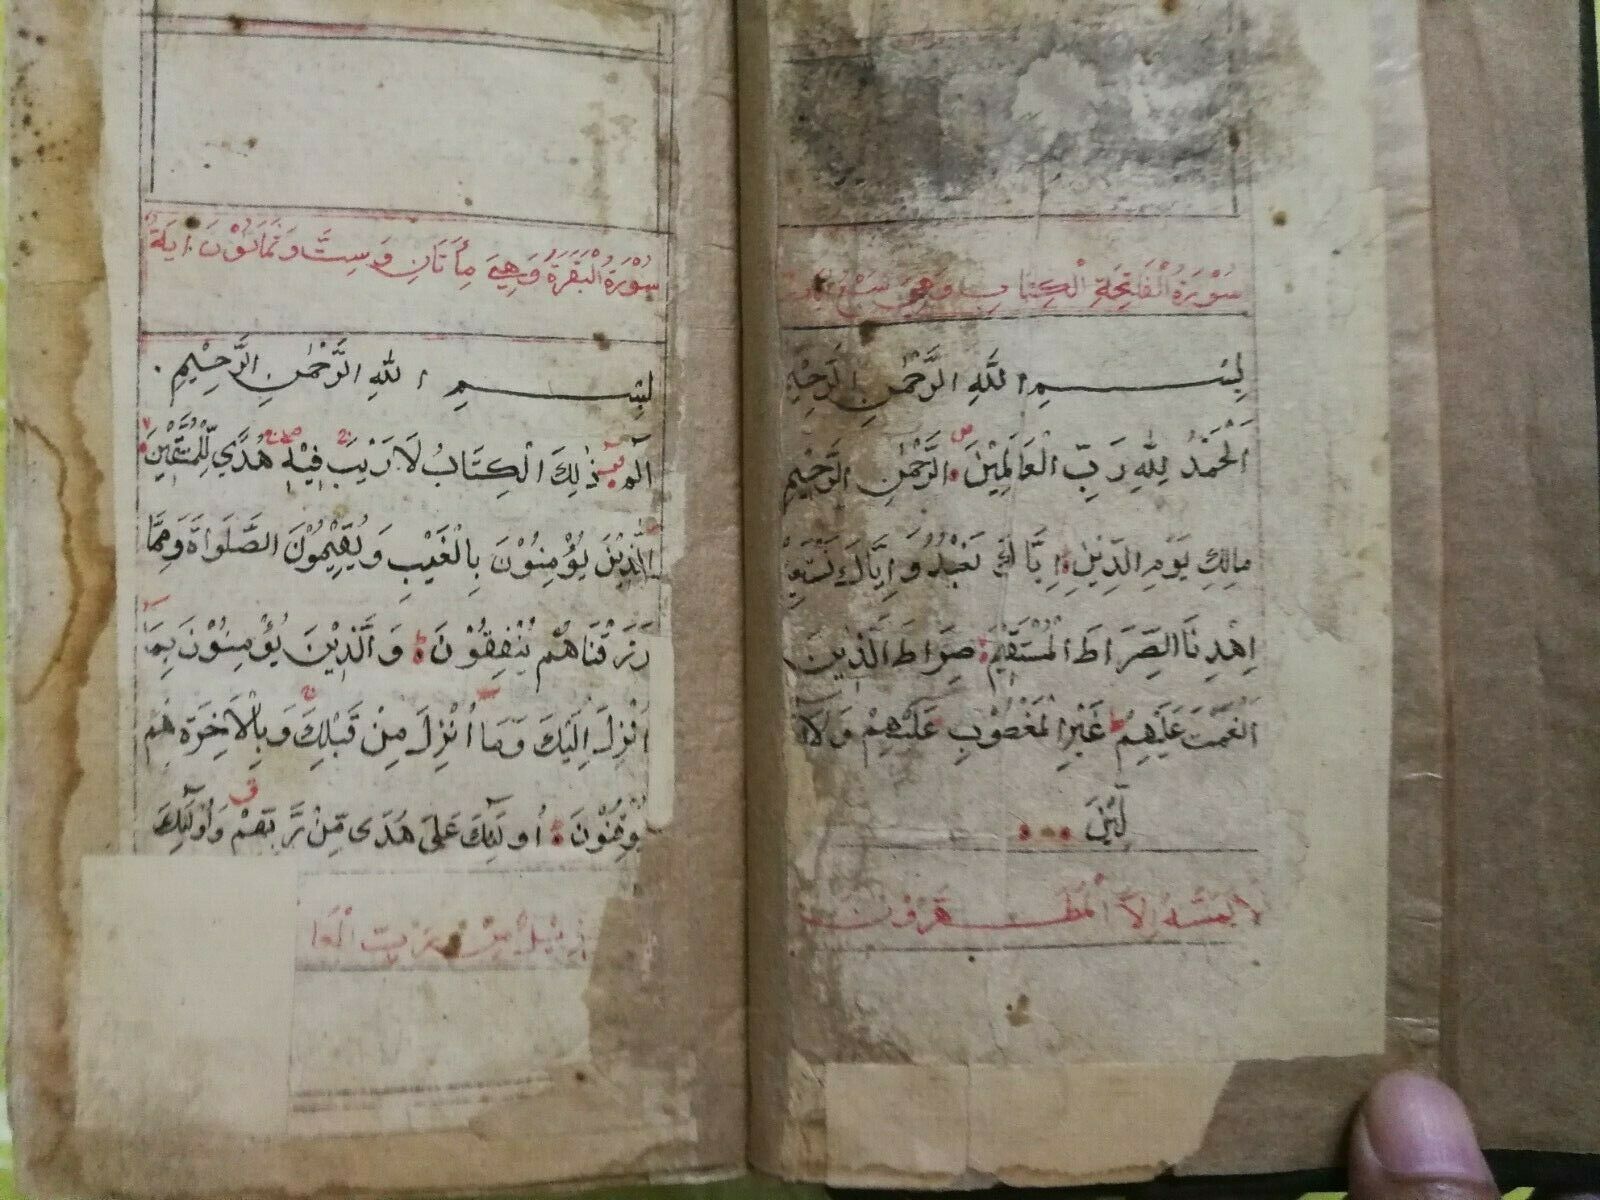 سُوْرَةُ الْفَاتِحَةِ الْكِتَابِ وَهِيَ سَبْعُ
بِسْمِ اللّٰهِ الرَّحْمٰنِ الرَّحِيْمِ
اَلْحَمْدُ لِلّٰهِ رَبِّ الْعَالَمِيْنَ الرَّحْمٰنِ الرَّحِيْمِ
مَالِكِ يَوْمِ الدِّيْنِ اِيَّاكَ نَعْبُدُ وَاِيَّاكَ نَسْتَعِيْ
اِهْدِنَا الصِّرَاطَ الْمُسْتَقِيْمَ صِرَاطَ الَّذِيْنَ
اَنْعَمْتَ عَلَيْهِمْ غَيْرِ الْمَغْضُوْبِ عَلَيْهِمْ وَلَا
لِّيْنَ
لَا يَمَسُّهٗ اِلَّا الْمُطَهَّرُوْنَ
سُوْرَةُ الْبَقَرَةِ وَهِيَ مِأَتَانِ وَسِتٌّ وَثَمَانُوْنَ اٰيَةً
بِسْمِ اللّٰهِ الرَّحْمٰنِ الرَّحِيْمِ
الٓمٓ ذٰلِكَ الْكِتَابُ لَا رَيْبَ فِيْهِ هُدًى لِّلْمُتَّقِيْنَ
الَّذِيْنَ يُؤْمِنُوْنَ بِالْغَيْبِ وَيُقِيْمُوْنَ الصَّلَوٰاةَ وَمِمَّا
رَزَقْنَاهُمْ يُنْفِقُوْنَ وَالَّذِيْنَ يُؤْمِنُوْنَ بِمَا
اُنْزِلَ اِلَيْكَ وَمَا اُنْزِلَ مِنْ قَبْلِكَ وَبِالْاٰخِرَةِ هُمْ
يُوْقِنُوْنَ اُولٰٓئِكَ عَلٰى هُدًى مِّنْ رَّبِّهِمْ وَاُولٰٓئِكَ
تَنْزِيْلٌ مِّنْ رَّبِّ الْعَا